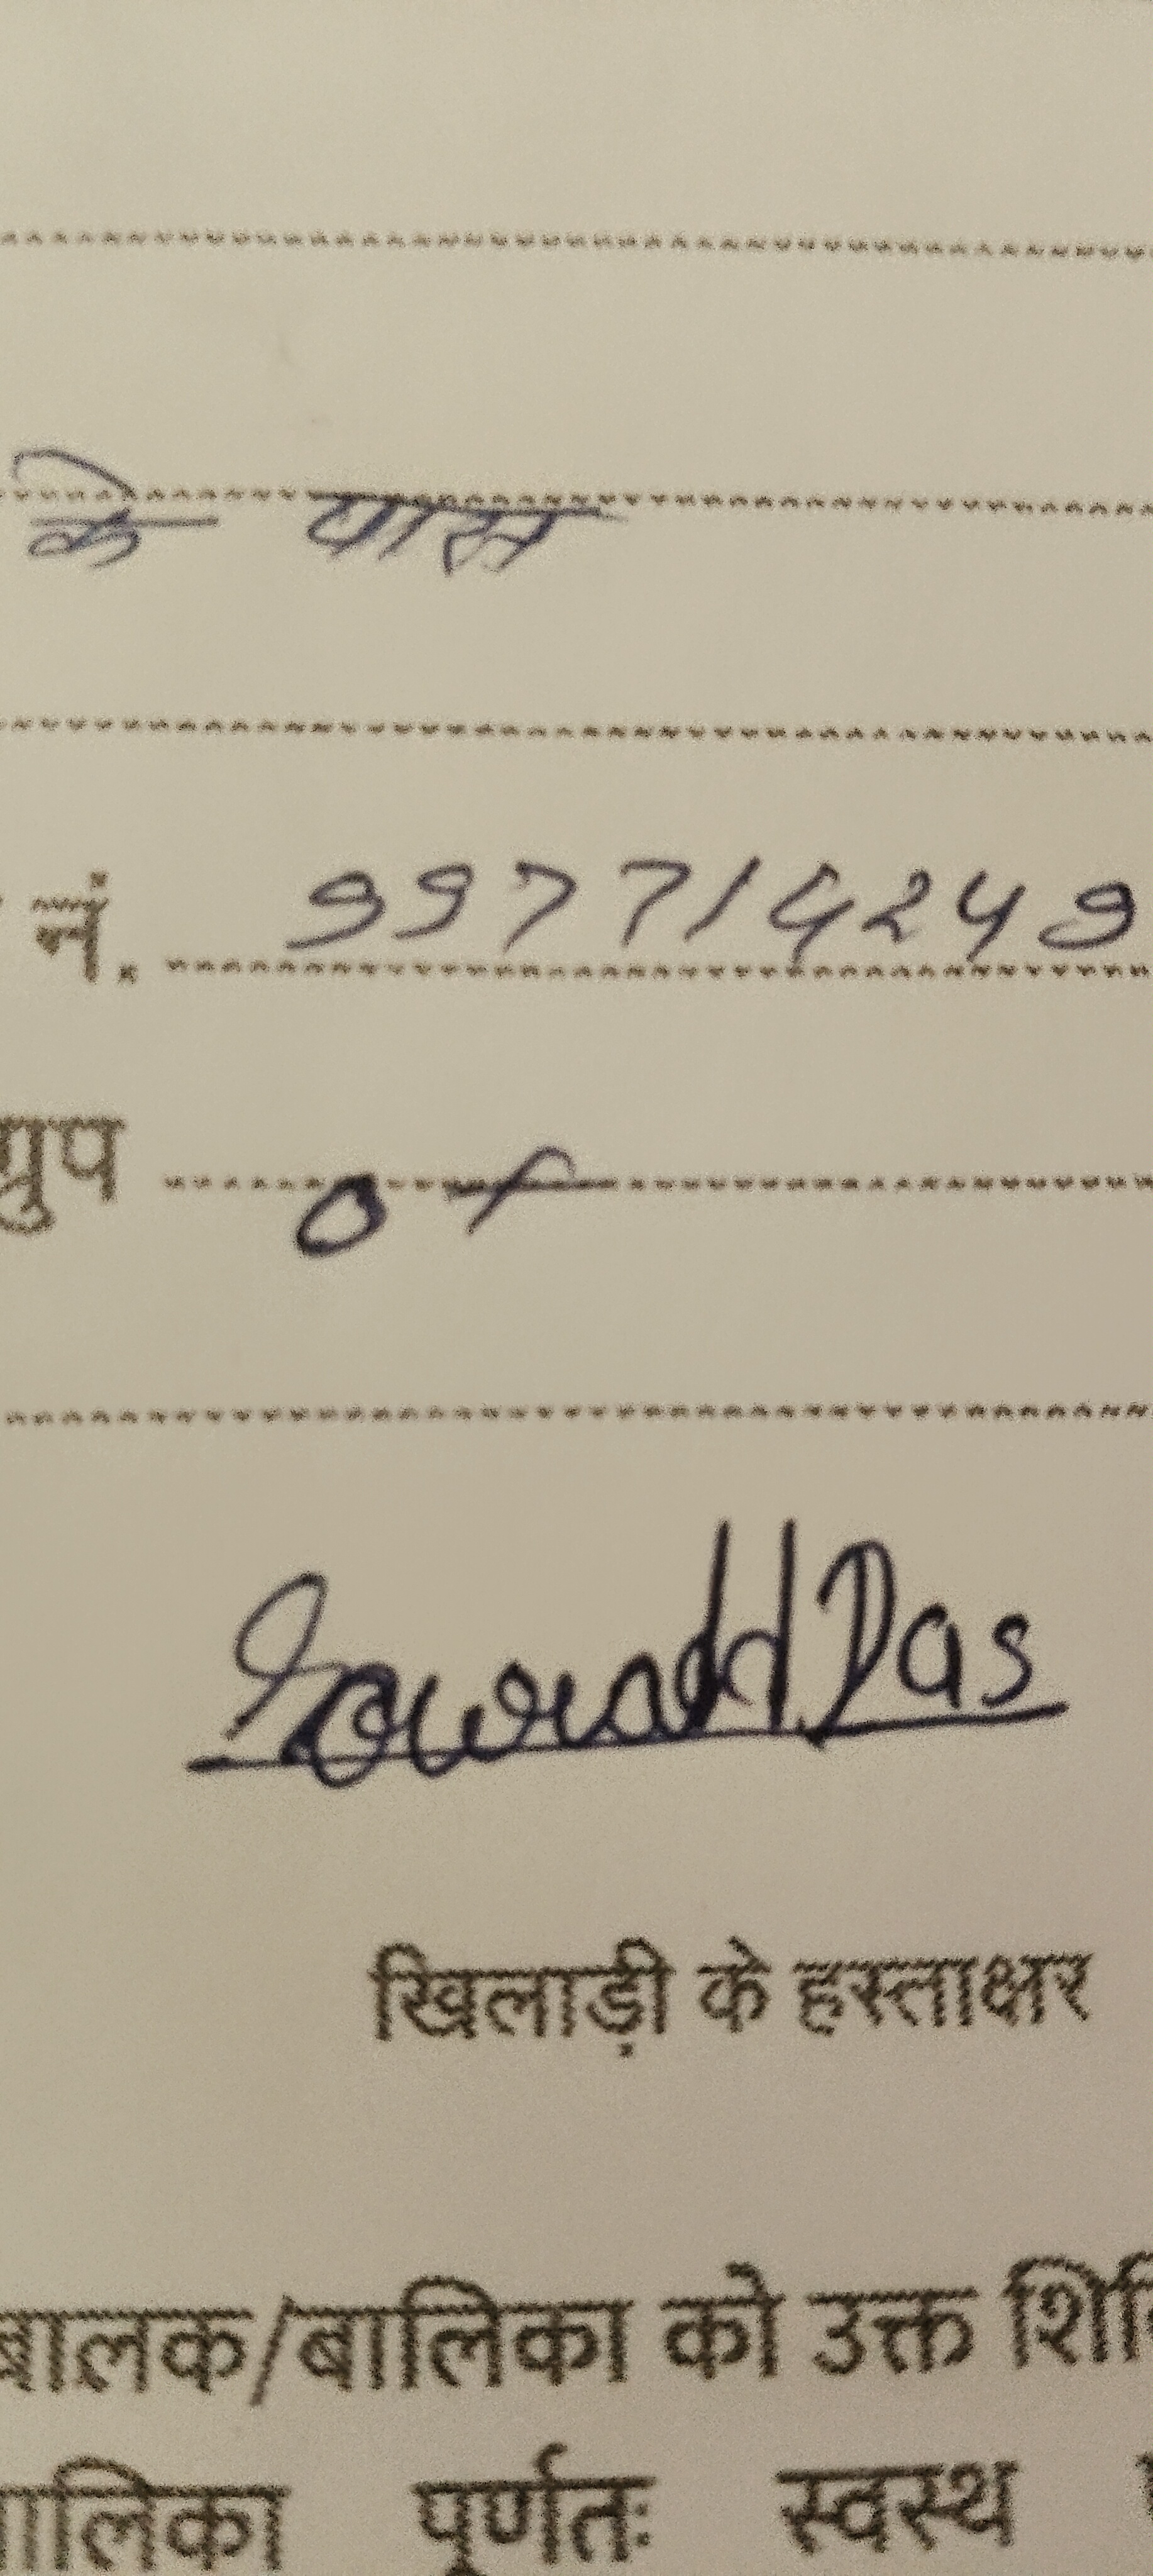 के पास
नं. 997714249
ग्रुप O+
Sourabh Das
खिलाड़ी के हस्ताक्षर
बालक/बालिका को उक्त
बालिका पूर्णतः स्वस्थ